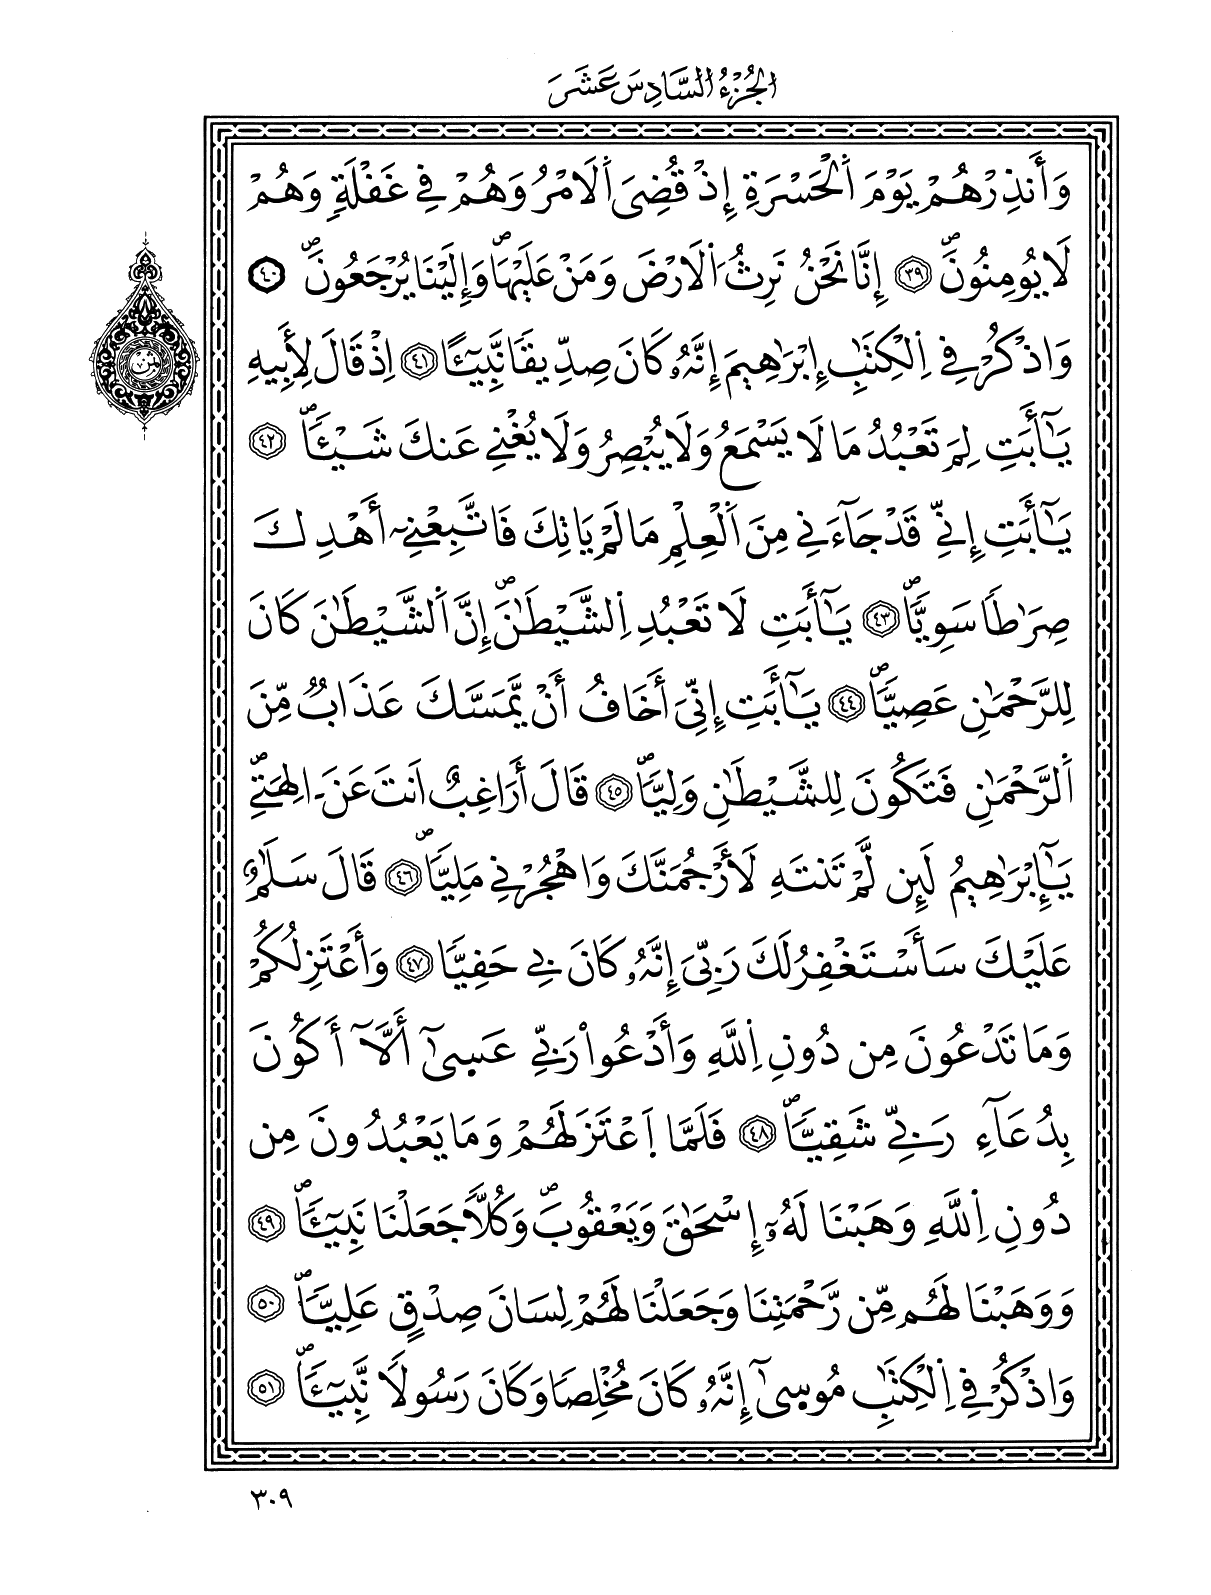 الجُزْءُ السَّادِسَ عَشَرَ
وَأَنذِرْهُمْ يَوْمَ اَ۬لْحَسْرَةِ إِذْ قُضِيَ اَ۬لَامْرُ وَهُمْ فِي غَفْلَةٍ وَهُمْ
لَا يُومِنُونَۖ ٣٩ إِنَّا نَحْنُ نَرِثُ اُ۬لَارْضَ وَمَنْ عَلَيْهَاۖ وَإِلَيْنَا يُرْجَعُونَۖ ٤٠
وَاذْكُرْ فِي اِ۬لْكِتَٰبِ إِبْرَٰهِيمَ إِنَّهُۥ كَانَ صِدِّيقاٗ نَّبِيٓـٔاً ٤١ اِذْ قَالَ لِأَبِيهِ
يَٰٓأَبَتِ لِمَ تَعْبُدُ مَا لَا يَسْمَعُ وَلَا يُبْصِرُ وَلَا يُغْنِي عَنكَ شَيْـٔاٗۖ ٤٢
يَٰٓأَبَتِ إِنِّي قَدْ جَآءَنِي مِنَ اَ۬لْعِلْمِ مَا لَمْ يَاتِكَ فَاتَّبِعْنِےٓ أَهْدِكَ
صِرَٰطاٗ سَوِيّاٗۖ ٤٣ يَٰٓأَبَتِ لَا تَعْبُدِ اِ۬لشَّيْطَٰنَۖ إِنَّ اَ۬لشَّيْطَٰنَ كَانَ
لِلرَّحْمَٰنِ عَصِيّاٗۖ ٤٤ يَٰٓأَبَتِ إِنِّيَ أَخَافُ أَنْ يَّمَسَّكَ عَذَابٞ مِّنَ
اَ۬لرَّحْمَٰنِ فَتَكُونَ لِلشَّيْطَٰنِ وَلِيّاٗۖ ٤٥ قَالَ أَرَاغِبٌ اَنتَ عَنَ اٰلِهَتِےۖ
يَٰٓإِبْرَٰهِيمُ لَئِن لَّمْ تَنتَهِ لَأَرْجُمَنَّكَ وَاهْجُرْنِي مَلِيّاٗۖ ٤٦ قَالَ سَلَٰمٌ
عَلَيْكَ سَأَسْتَغْفِرُ لَكَ رَبِّيَ إِنَّهُۥ كَانَ بِي حَفِيّاٗ ٤٧ وَأَعْتَزِلُكُمْ
وَمَا تَدْعُونَ مِن دُونِ اِ۬للَّهِ وَأَدْعُواْ رَبِّي عَسَىٰٓ أَلَّآ أَكُونَ
بِدُعَآءِ رَبِّي شَقِيّاٗۖ ٤٨ فَلَمَّا اَ۪عْتَزَلَهُمْ وَمَا يَعْبُدُونَ مِن
دُونِ اِ۬للَّهِ وَهَبْنَا لَهُۥٓ إِسْحَٰقَ وَيَعْقُوبَۖ وَكُلّاٗ جَعَلْنَا نَبِيٓـٔاٗۖ ٤٩
وَوَهَبْنَا لَهُم مِّن رَّحْمَتِنَا وَجَعَلْنَا لَهُمْ لِسَانَ صِدْقٍ عَلِيّاٗۖ ٥٠
وَاذْكُرْ فِي اِ۬لْكِتَٰبِ مُوسَىٰٓ إِنَّهُۥ كَانَ مُخْلِصاٗ وَكَانَ رَسُولاٗ نَّبِيٓـٔاٗۖ ٥١
ثمن
٣٠٩